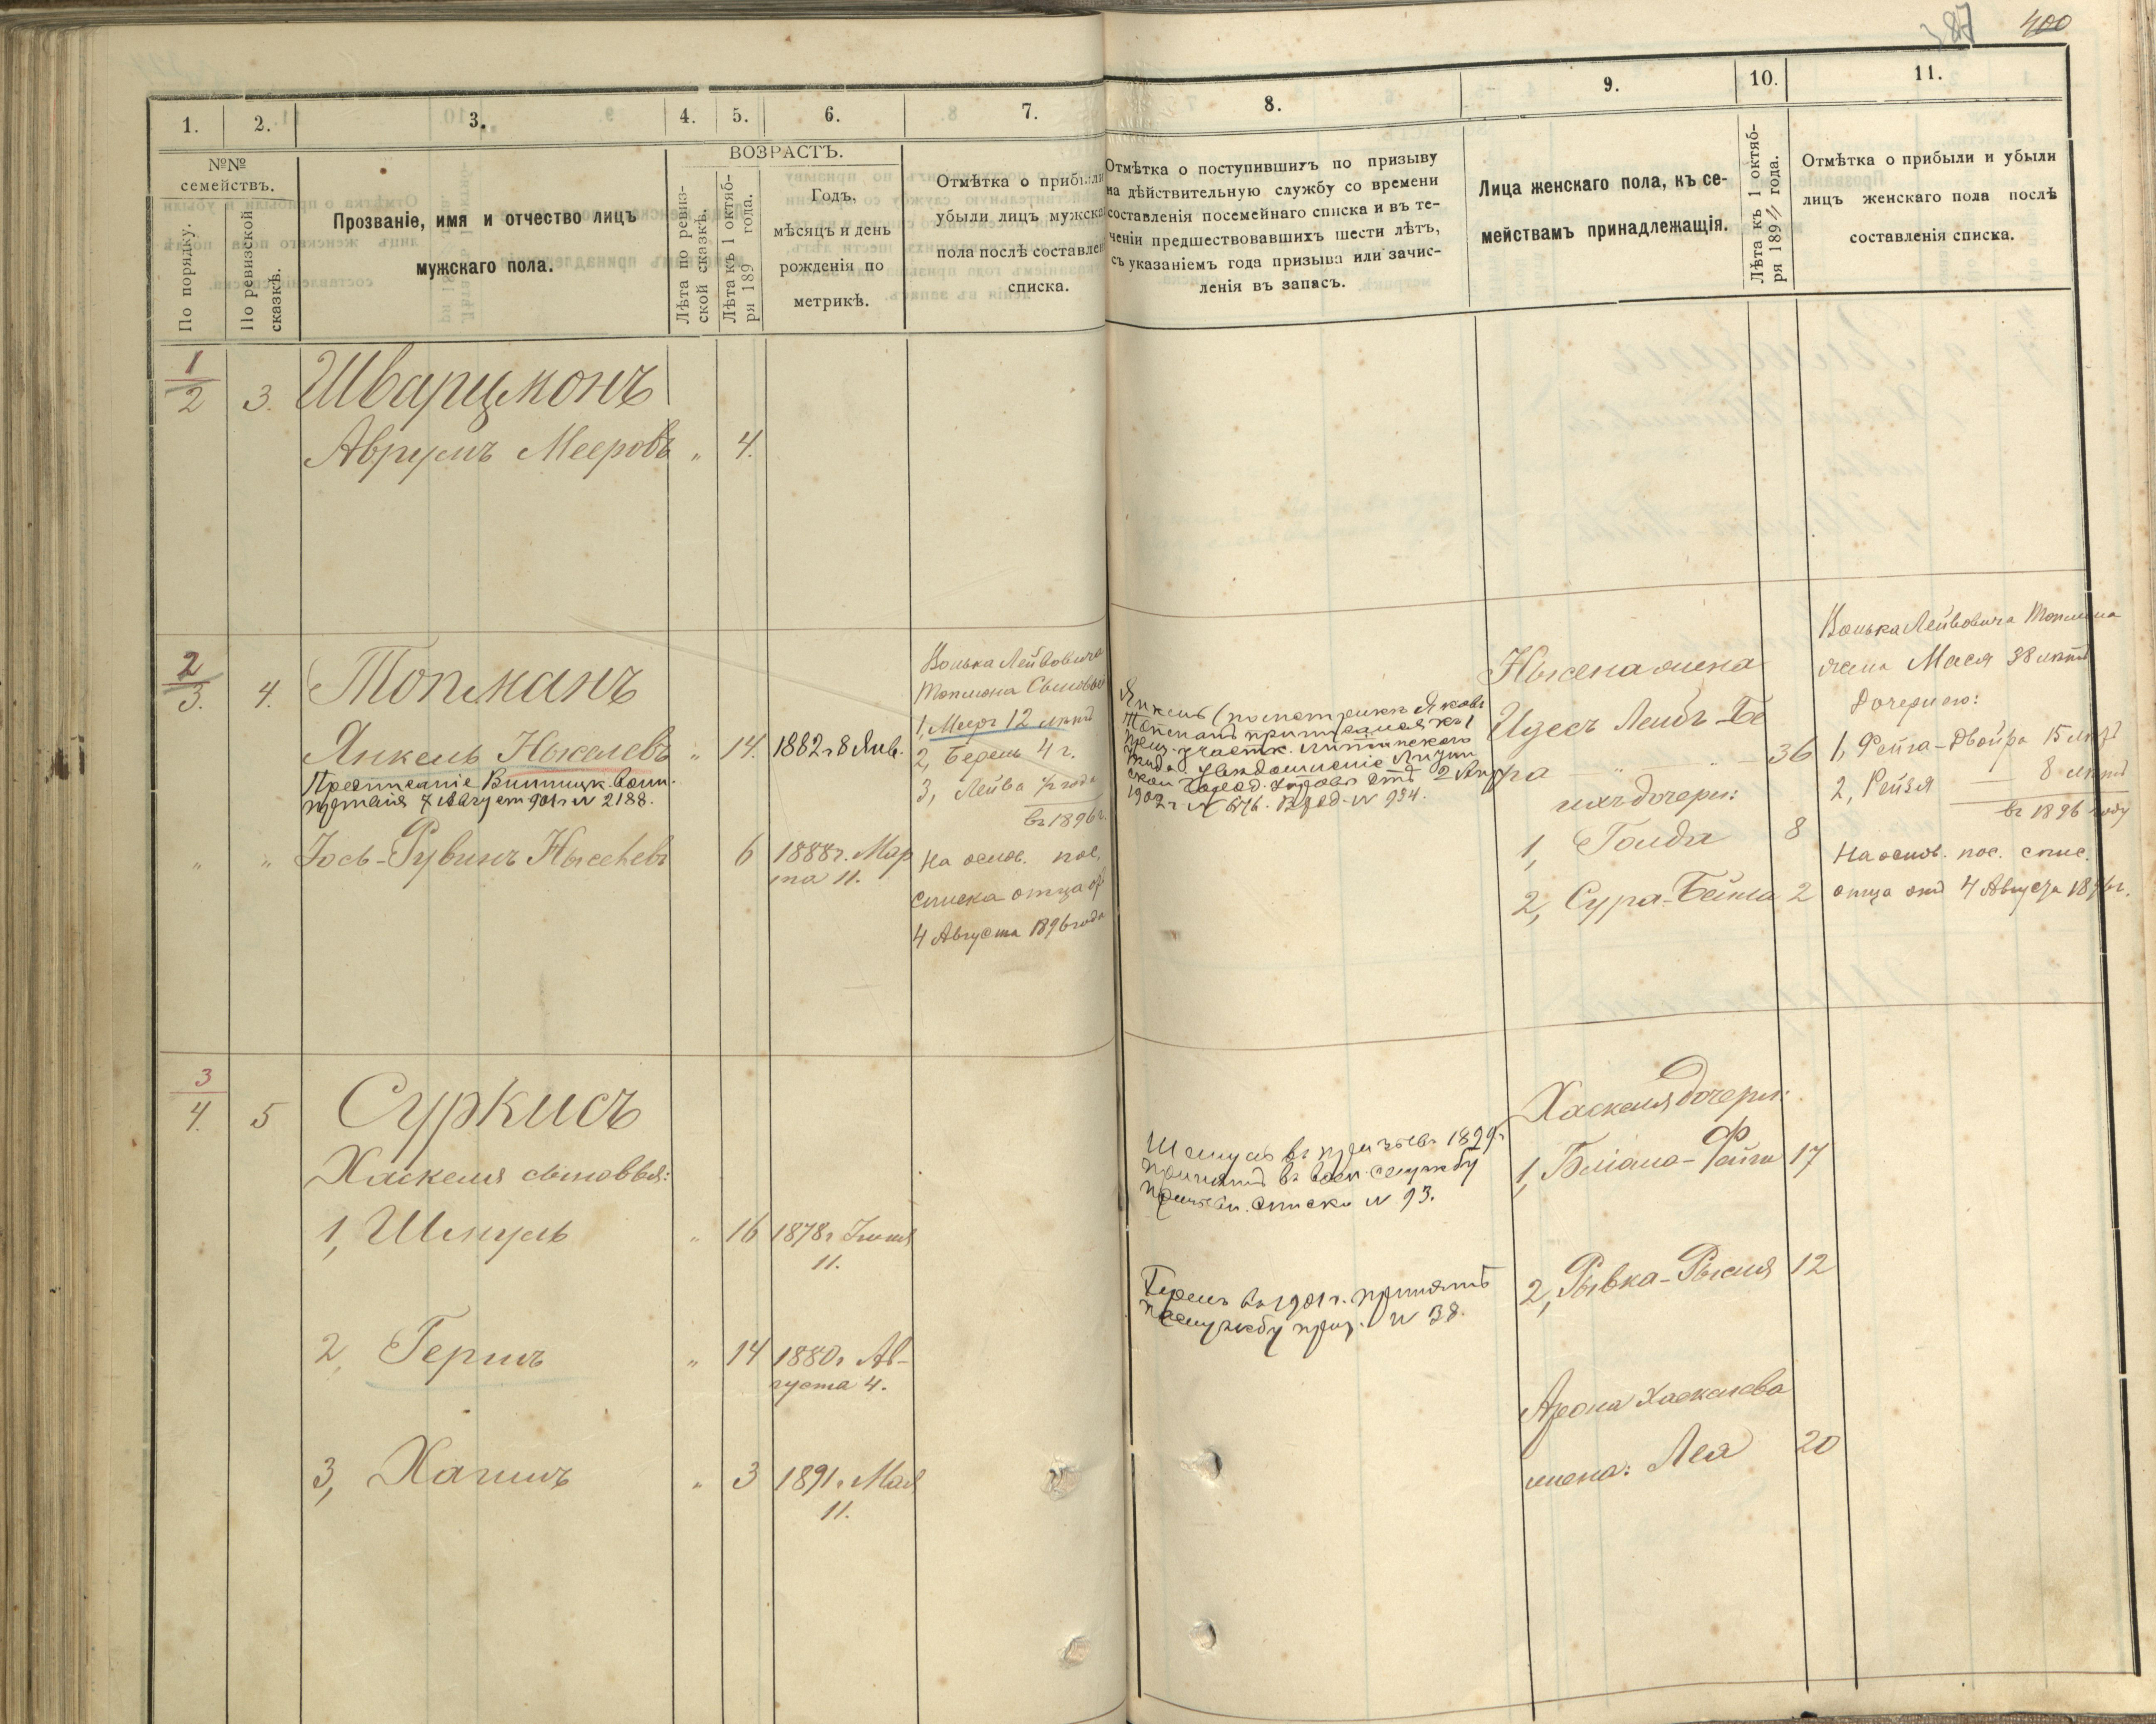 387 400
1. 2. 3. 4. 5. 6. 7. 8. 9. 10. 11.
№№ семействъ.
По порядку.
По ревизской сказкѣ.
Прозваніе, имя и отчество лицъ
мужскаго пола.
ВОЗРАСТЪ.
Лѣта по ревиз-
ской сказкѣ.
Лѣта къ 1 октяб-
ря 189 года.
Годъ,
мѣсяцъ и день
рожденія по
метрикѣ.
Отмѣтка о прибыли
убыли лицъ мужска
пола послѣ составлен
списка.
Отмѣтка о поступившихъ по призыву
на дѣйствительную службу со времени
составленія посемейнаго списка и въ те-
ченіи предшествовавшихъ шести лѣтъ,
съ указаніемъ года призыва или зачис-
ленія въ запасъ.
Лица женскаго пола, къ се-
мействамъ принадлежащія.
Лѣта къ 1 октяб-
ря 1894 года.
Отмѣтка о прибыли и убыли
лицъ женскаго пола послѣ
составленія списка.
1/2 3. Шварцмонъ
Аврумъ Мееровъ " 4.
2/3. 4. Топманъ
Янкель " 14. 1882 г 8 Янв.
Предписаніе Винницк. воин.
7 Август 901 г № 2188.
" " Іось-Рувинъ 6 1888 г. Мар
та 11.
Лейвовича
Топмона Сыновья
1, Мееръ 12 лѣтъ
2, Берель 4 г.
3, Лейва ½ года
въ 1896 г.
На основ. пос.
списка отца отъ
4 Августа 1896 года
Янкель (по метрикѣ Яковъ
Топманъ приписанъ къ 1
приз. участк.
2 Апр
1902 г № 676. № 934.
жена
Идесъ Лейбъ-Бе
ра " " 36
ихъ дочери:
1, Голда 8
2, Сура-Бейла 2
Лейвовича Топмана
жена Мася 38 лѣтъ
Дочери его:
1, Фейга-Двойра 15 лѣтъ
2, Рейзя 8 лѣтъ
въ 1896 году
На основ. пос. спис.
отца отъ 4 Августа 1896 г.
3/4. 5 Суркисъ
Хаскеля сыновья:
1, Шмуль " 16 1878 г Іюля
11.
2, Гершъ " 14 1880 г Ав-
густа 4.
3, Хаимъ " 3 1891 г Мая
11.
Шмуль въ призывъ 1899 г
принятъ въ воен. службу
списка № 93.
Гершъ въ 1901 г. принятъ
на службу приз. № 38.
Хаскеля дочери:
1, Файга 17
2, Рывка-Рысия 12
Арона Хаскелева
жена: Лея 20